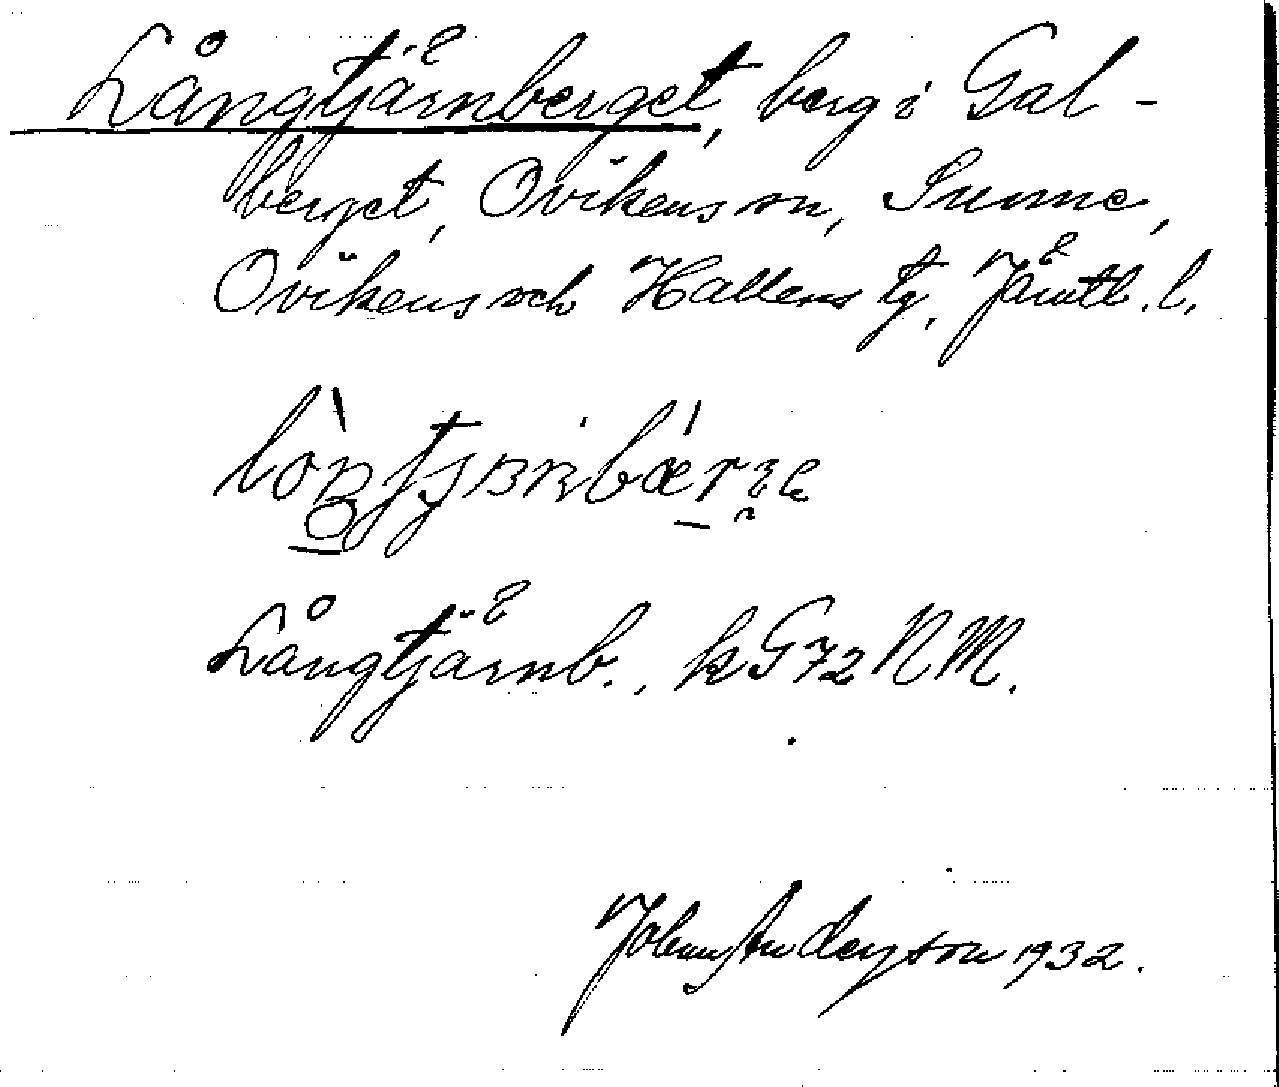 Långtjärnberget, berg i Gal-
berget, Ovikens sn, Sunne,
Ovikens och Hallens tg, Jämtl. l.
Långtjärnb., kG72NM.
Johan Anderson 1932.